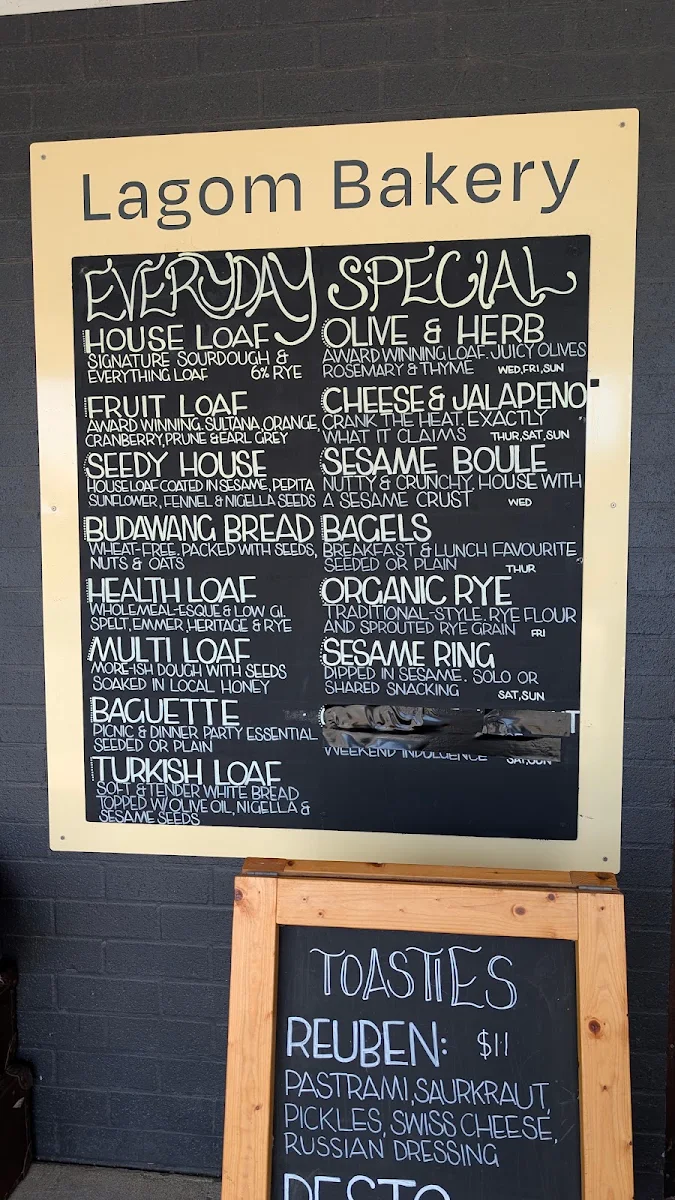 Lagom Bakery
EVERYDAY
HOUSE LOAF
SIGNATURE SOURDOUGH &
EVERYTHING LOAF 6% RYE
FRUIT LOAF
AWARD WINNING. SULTANA, ORANGE,
CRANBERRY, PRUNE & EARL GREY
SEEDY HOUSE
HOUSE LOAF COATED IN SESAME, PEPITA
SUNFLOWER, FENNEL & NIGELLA SEEDS
BUDAWANG BREAD
WHEAT-FREE. PACKED WITH SEEDS,
NUTS & OATS
HEALTH LOAF
WHOLEMEAL-ESQUE & LOW GI.
SPELT, EMMER, HERITAGE & RYE
MULTI LOAF
MORE-ISH DOUGH WITH SEEDS
SOAKED IN LOCAL HONEY
BAGUETTE
PICNIC & DINNER PARTY ESSENTIAL
SEEDED OR PLAIN
TURKISH LOAF
SOFT & TENDER WHITE BREAD
TOPPED W/ OLIVE OIL, NIGELLA &
SESAME SEEDS
SPECIAL
OLIVE & HERB
AWARD WINNING LOAF. JUICY OLIVES
ROSEMARY & THYME WED, FRI, SUN
CHEESE & JALAPENO
CRANK THE HEAT. EXACTLY
WHAT IT CLAIMS THUR, SAT, SUN
SESAME BOULE
NUTTY & CRUNCHY. HOUSE WITH
A SESAME CRUST WED
BAGELS
BREAKFAST & LUNCH FAVOURITE
SEEDED OR PLAIN THUR
ORGANIC RYE
TRADITIONAL-STYLE. RYE FLOUR
AND SPROUTED RYE GRAIN FRI
SESAME RING
DIPPED IN SESAME. SOLO OR
SHARED SNACKING SAT, SUN
WEEKEND INDULGENCE SAT, SUN
TOASTIES
REUBEN: $11
PASTRAMI, SAURKRAUT,
PICKLES, SWISS CHEESE,
RUSSIAN DRESSING
PESTO